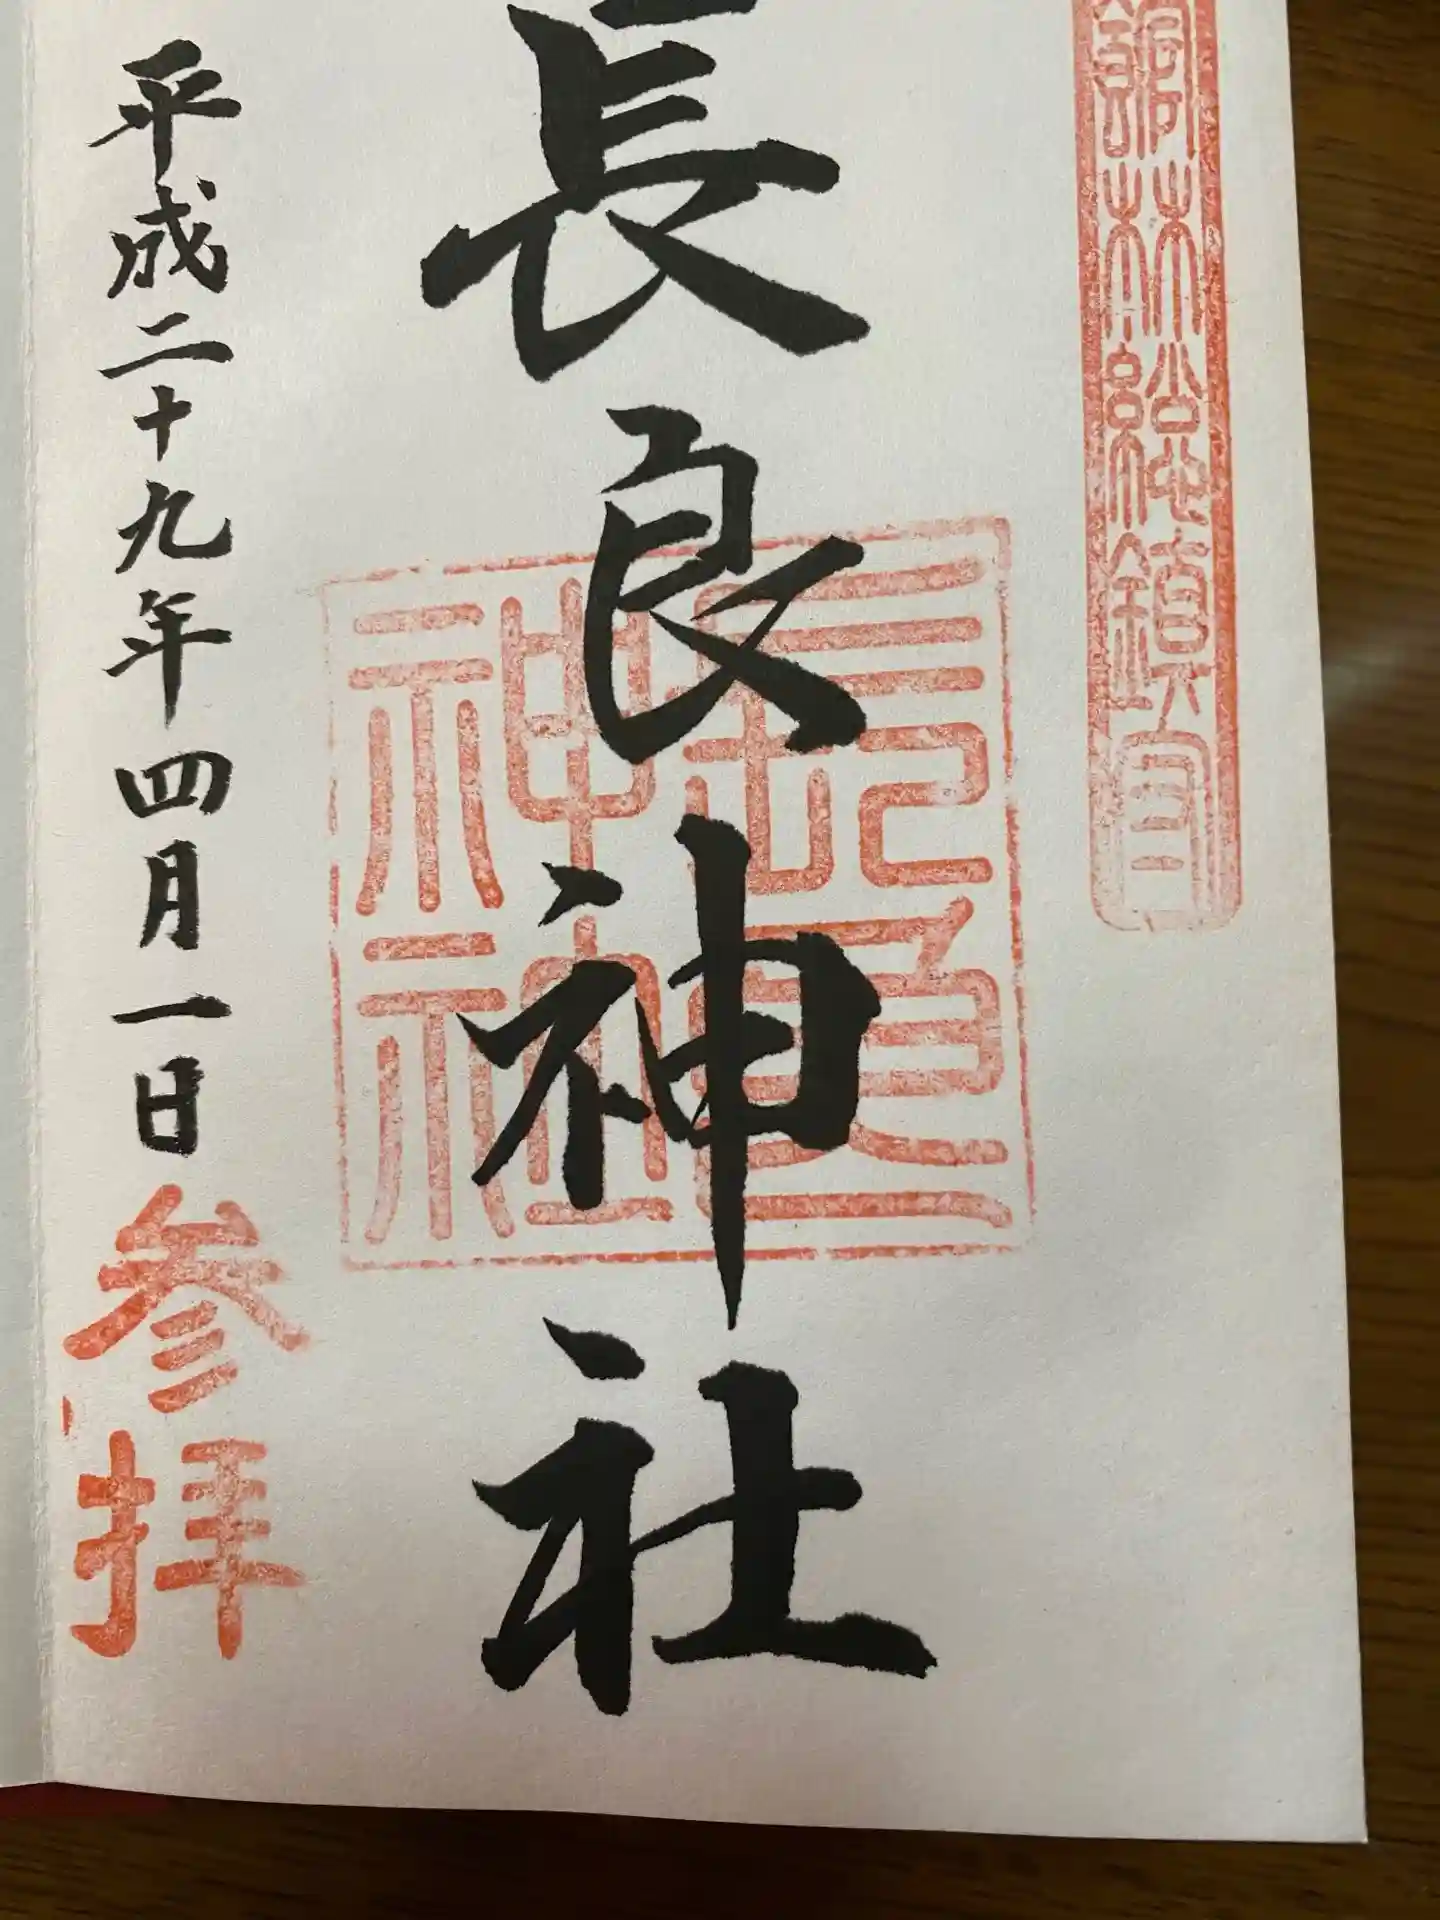 館林総鎮守
長良神社
長良神社
平成二十九年四月一日
参拝